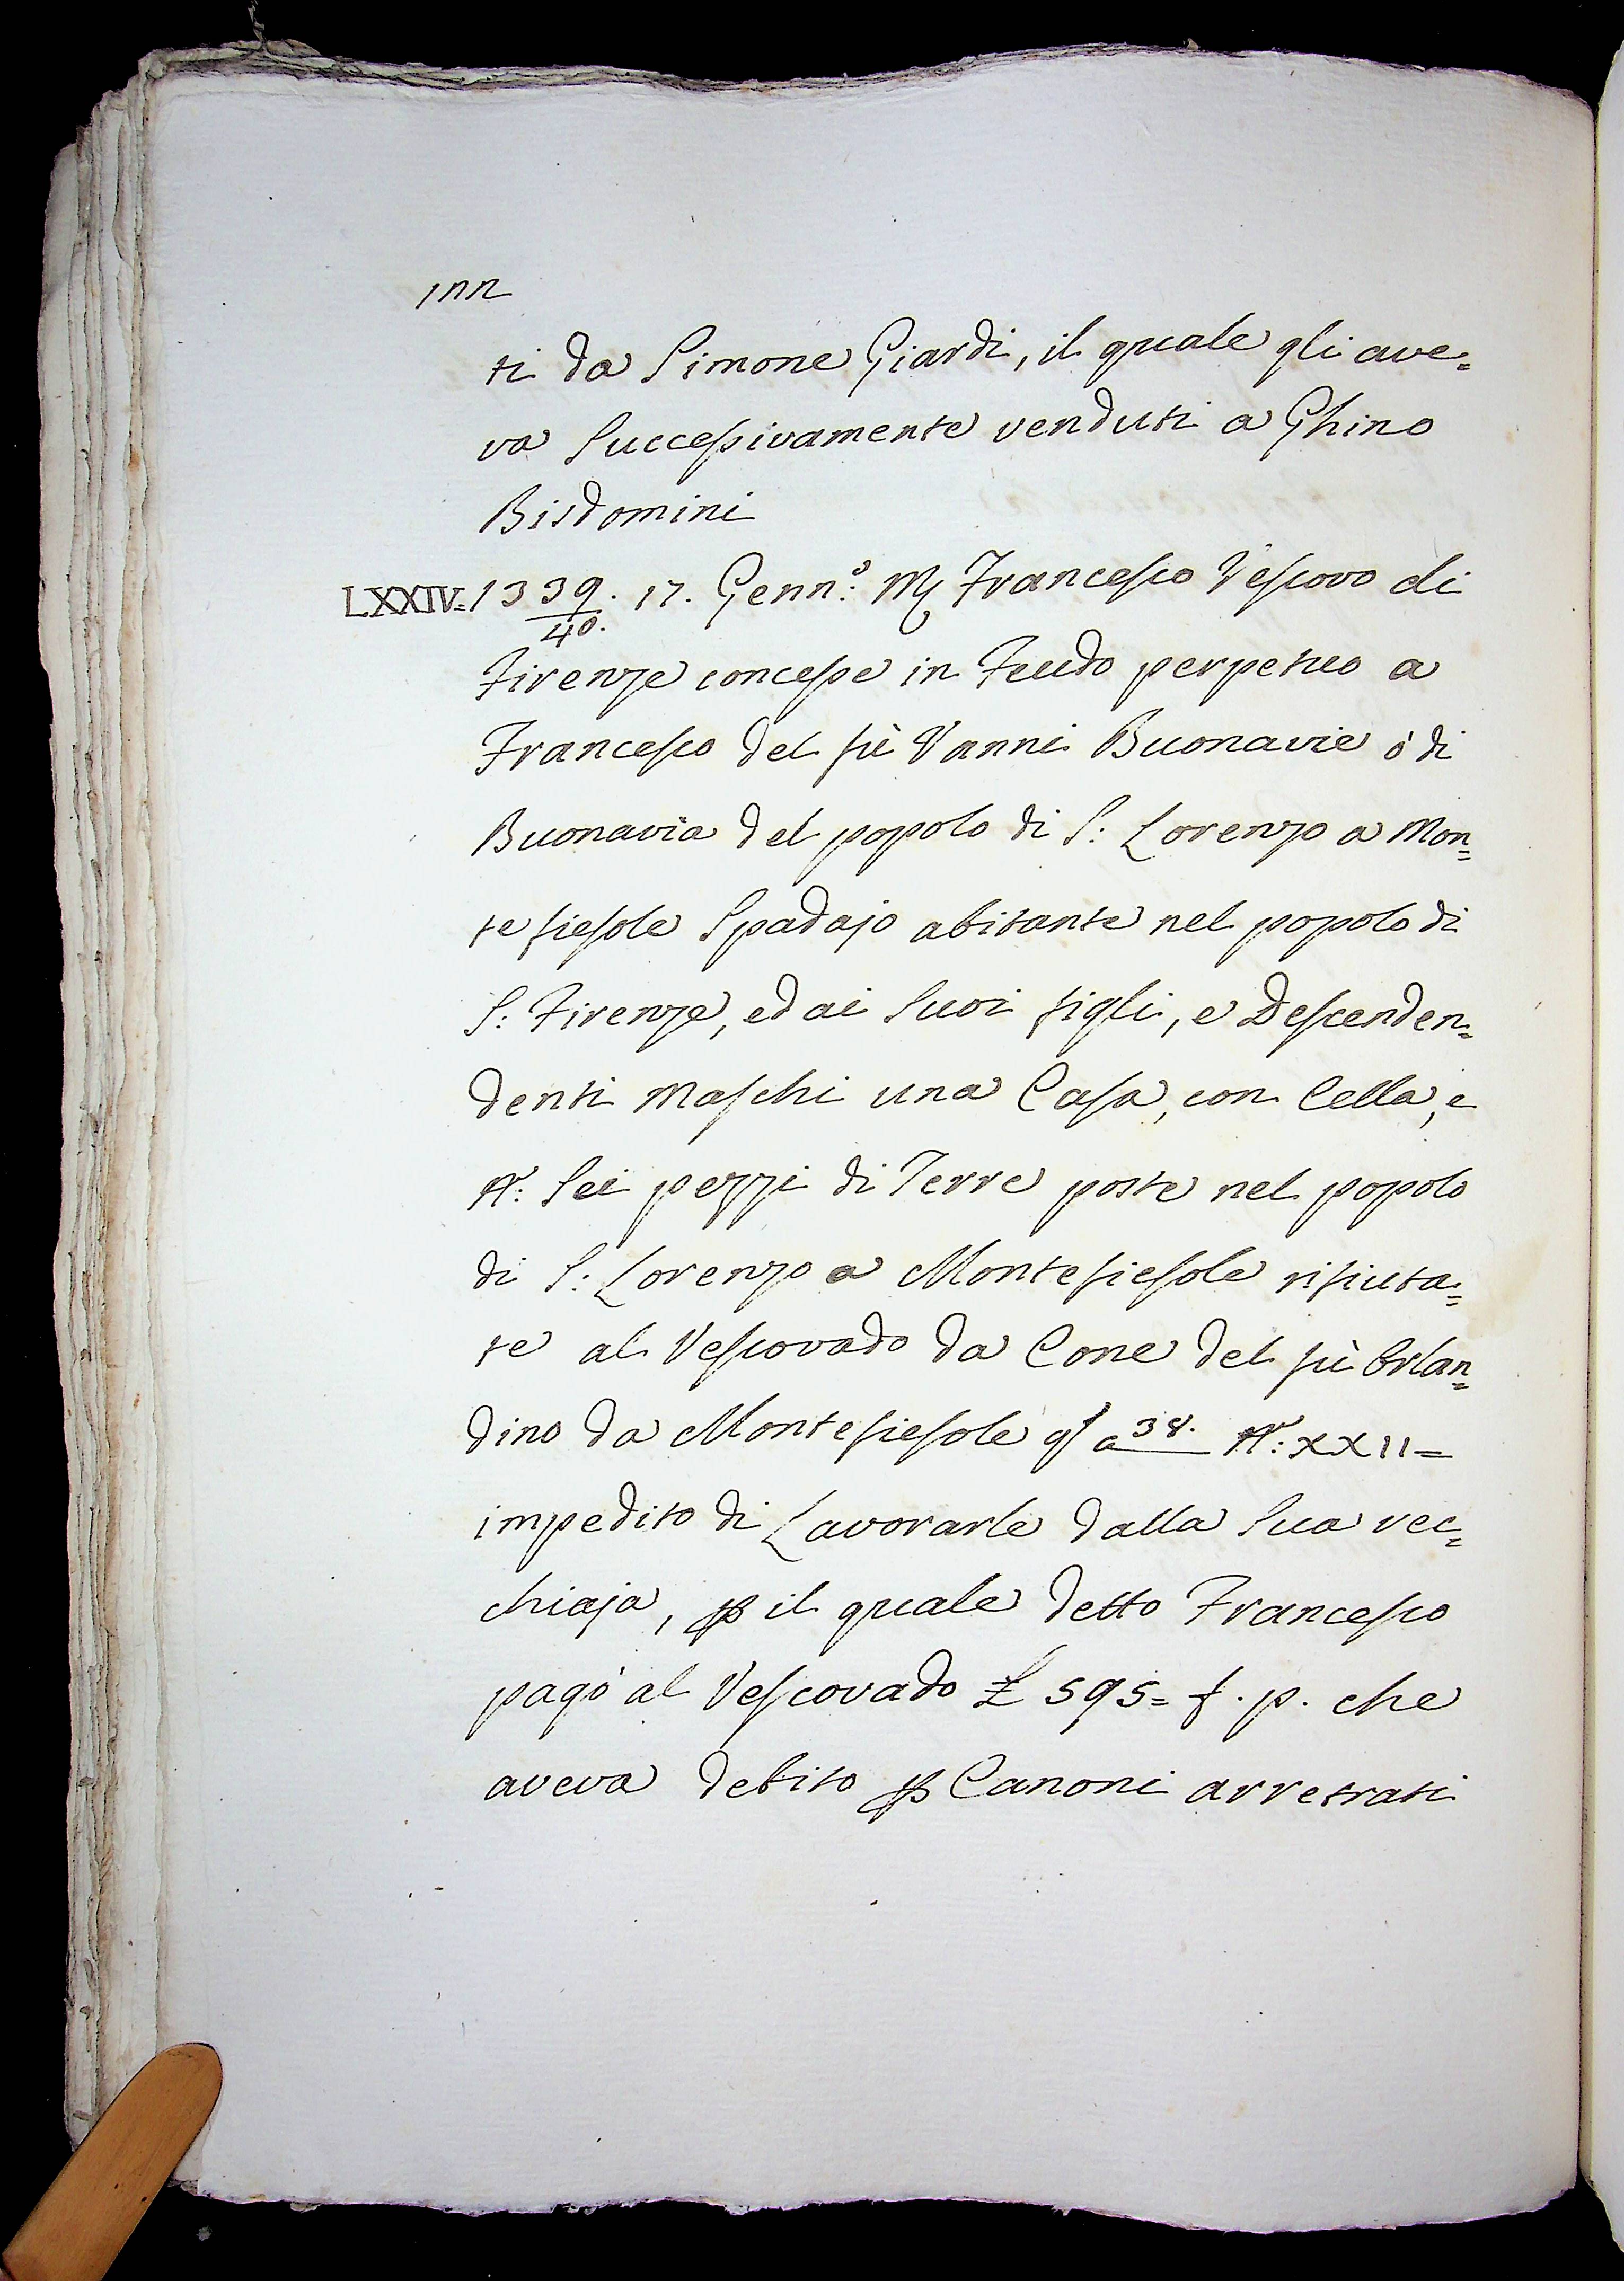 ti da Simone Giardi, il quale gli ave=
va Successivamente venduti a Ghino
Bisdomini
LXXIV= 1339/40. 17. Genn.o: Mr Francesco Vescovo di
Firenze concesse in Feudo perpetuo a
Francesco del fù Vanni Buonavie ò di
Buonavia del popolo di S: Lorenzo a Mon=
te fiesole Spadajo abitante nel popolo di
S: Firenze, ed ai Suoi figli, e Descenden=
denti Maschi una Casa, con Cella, e
N: Sei pezzi di Terre poste nel popolo
di S: Lorenzo a Montefiesole rifiuta=
te al Vescovado da Cone del fù Orlan=
dino da Montefiesole a 38. N: XXII=
impedito di Lavorarle dalla Sua vec=
chiaja, p il quale detto Francesco
pagò al Vescovado £ 595= f. p. che
aveva debito p Canoni arretrati